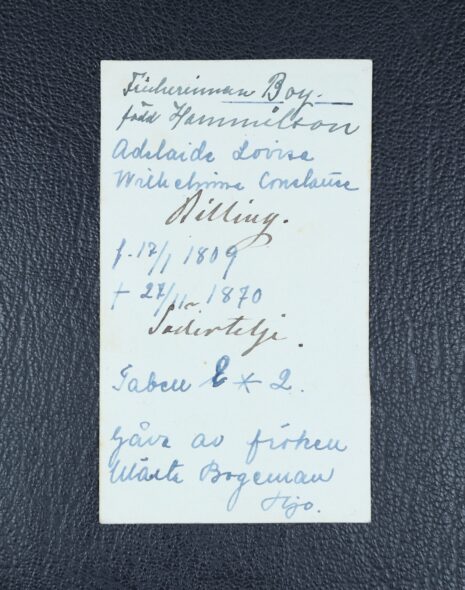 Friherinnan Boy-
född Hammilton
Adelaide Lovisa
Wilhelmina Constause
Billing.
f. 17/1 1809
+ 27/11 1870
Södertelje.
Tabell E * 2.
Gåva av fröken
Märta Bogeman
Hjo.